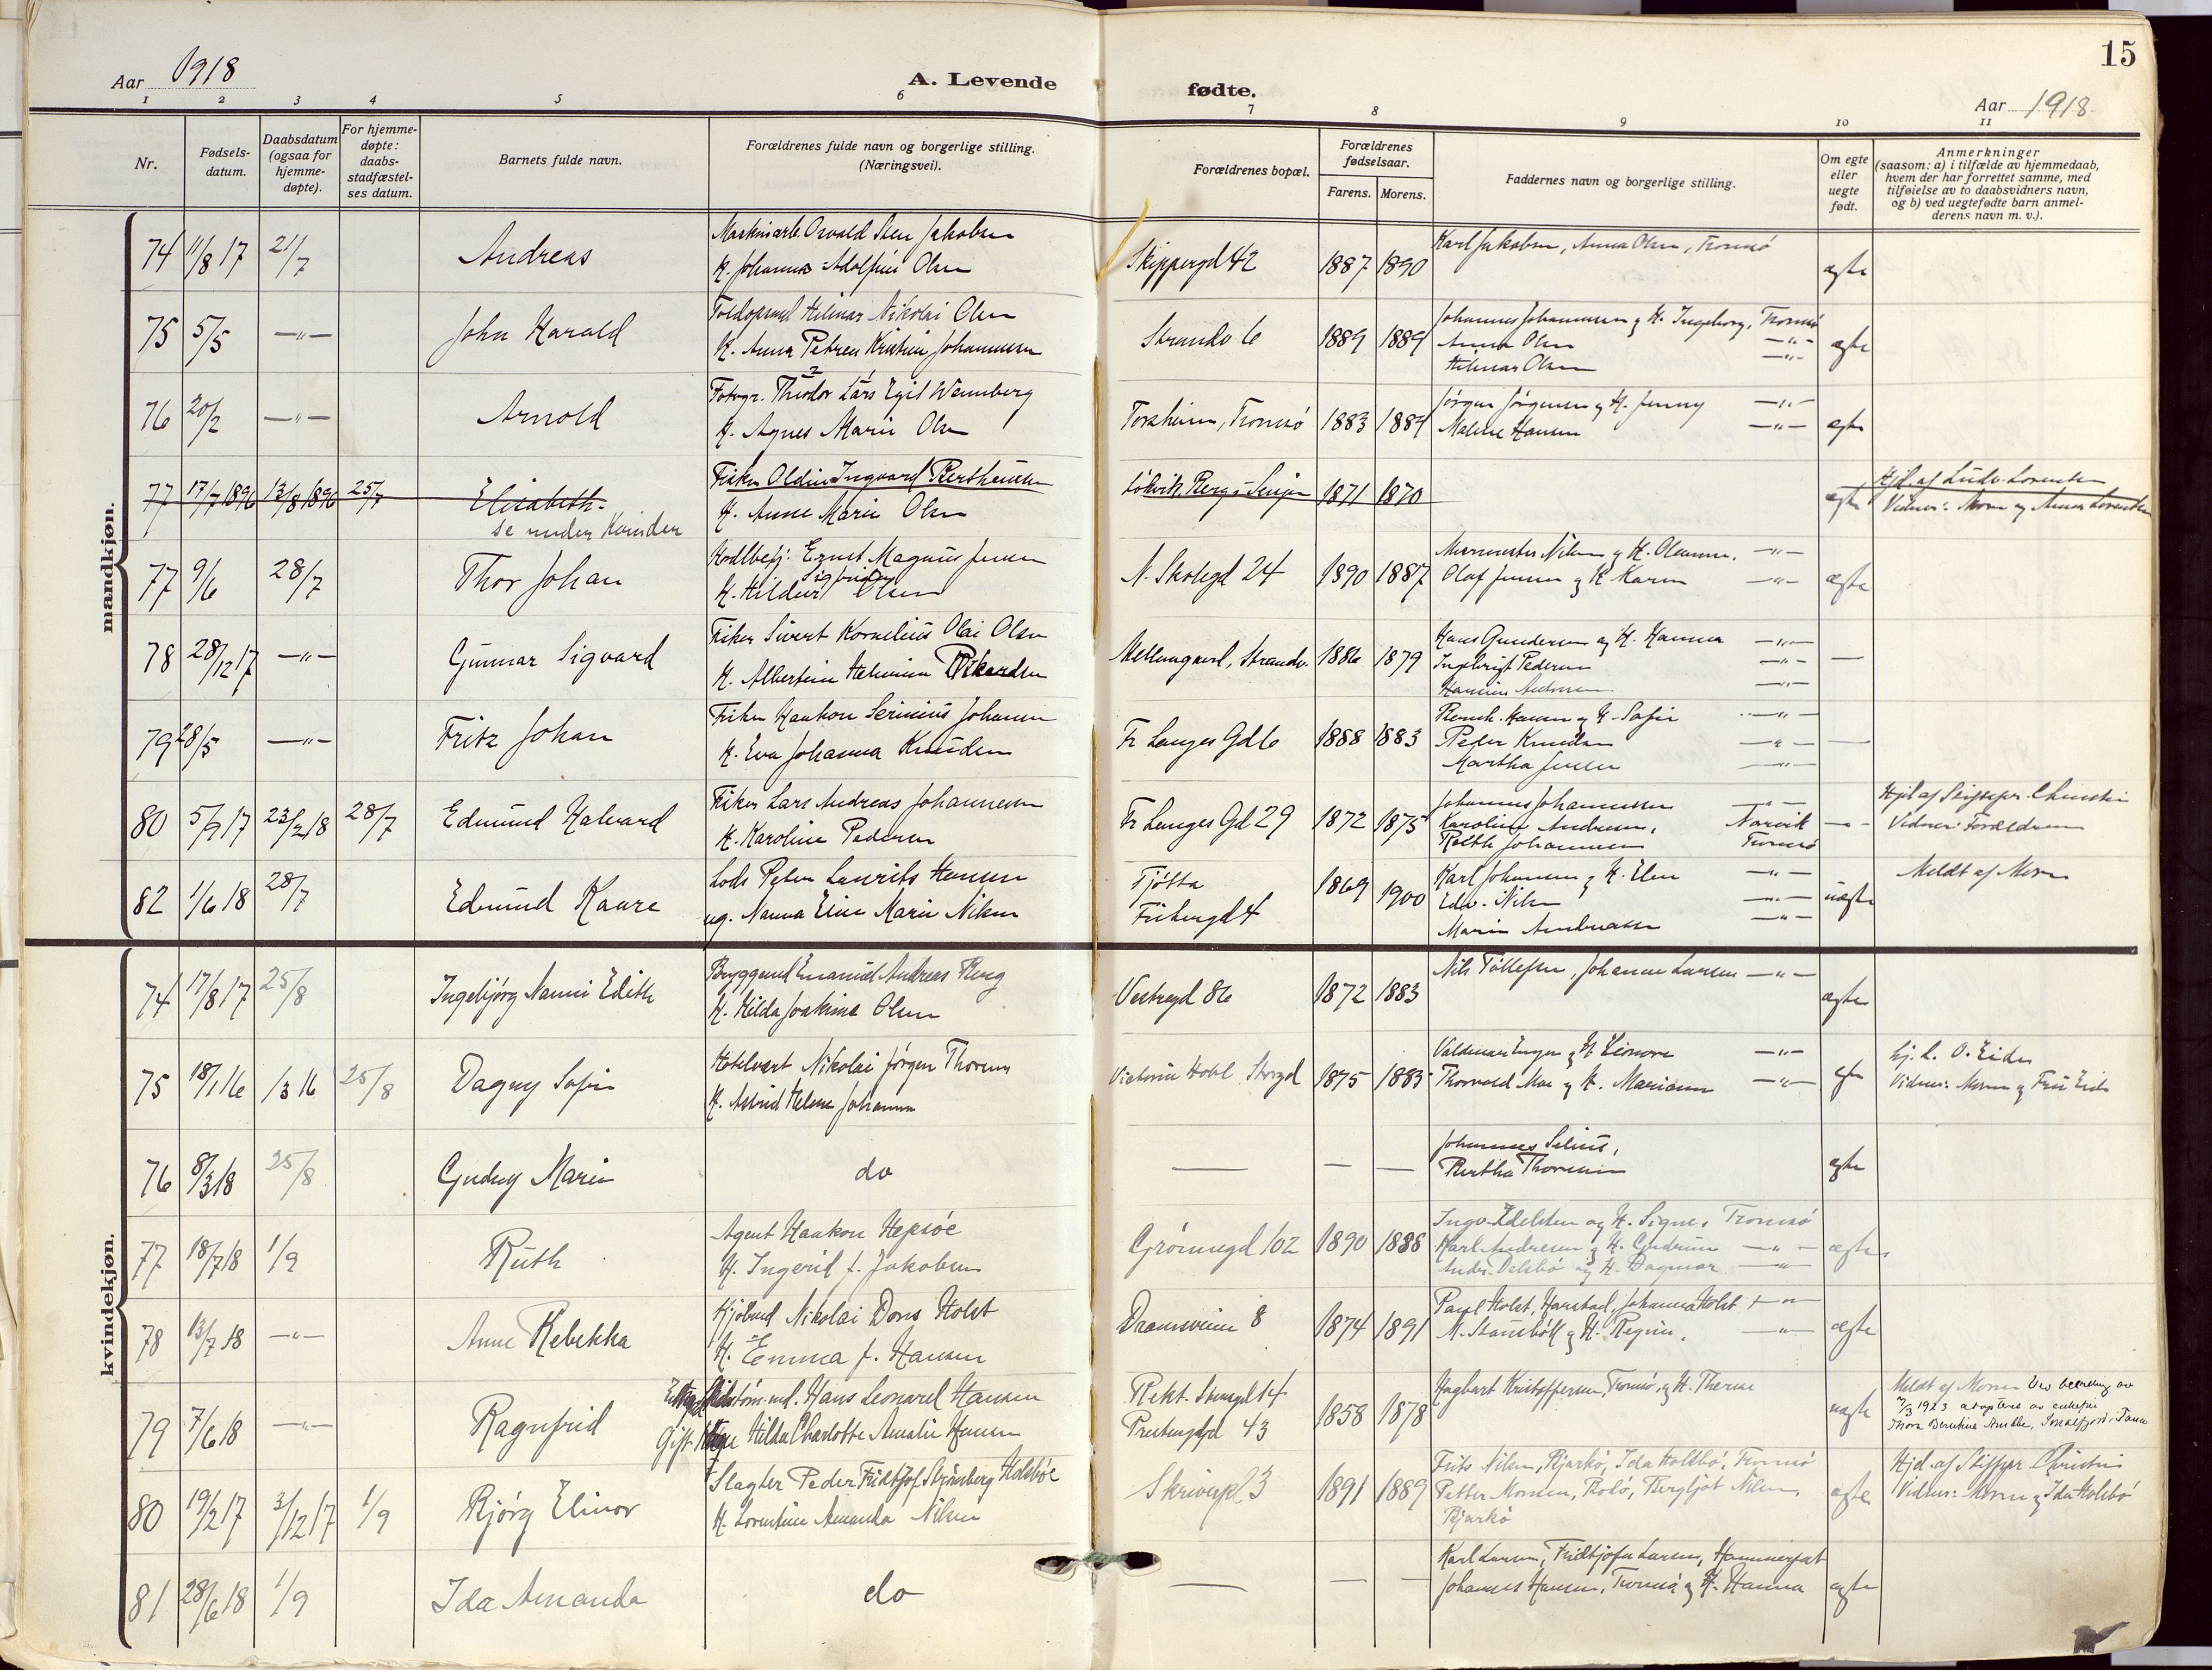 15
Aar 1918
A. Levende
fødte.
Aar 1918
1 2 3 4 5 6 7 8 9 10 11
Nr.
Fødsels-
datum.
Daabsdatum
(ogsaa for
hjemme-
døpte).
For hjemme-
døpte:
daabs-
stadfæstel-
ses datum.
Barnets fulde navn.
Forældrenes fulde navn og borgerlige stilling.
(Næringsvei).
Forældrenes bopæl.
Forældrenes
fødselsaar.
Farens. Morens.
Faddernes navn og borgerlige stilling.
Om egte
eller
uegte
født.
Anmerkninger
(saasom: a) i tilfælde av hjemmedaab,
hvem der har forrettet samme, med
tilføielse av to daabsvidners navn,
og b) ved uegtefødte barn anmel-
derens navn m. v.).
mandkjøn.
74 11/8 17 21/7 Andreas
Osvald Sten Jakobsen
H. Johanna Adolfine Olsen
Skippergd 42 1887 1890
Karl Jakobsen, Anna Olsen, Tromsö
ægte
75 5/5 —"— John Harald
Hilmar Nikolai Olsen
H. Anna Petrea Kristine Johannesen
Strandv 6 1889 1889
Johannes Johannesen og H. Ingeborg, Tromsö
Anna Olsen —"—
Hilmar Olsen —"—
ægte
76 20/2 —"— Arnold
Fotogr. Theodor Lars Egil Wennberg
H. Agnes Marie Olsen
Tromsö 1883 1884
Jörgen Jörgensen og H. Jenny —"—
Malene Hansen —"—
ægte
77 17/7 1896 13/8 1896 25/7 Elisabeth
se under Kvinder
Fisker Oldin Ingvard Berthensen
H. Anne Marie Olsen
Berg i Senjen 1871 1870
ægte
Hjd. af Ludv. Lorentsen
Vidner: Moren og Anna Lorentsen
77 9/6 28/7 Thor Johan
Ernst Magnus Jensen
H. Hildur Sigfrida Olsen
N. Skolegd 24 1890 1887
Murmester Nilsen og H. Oleanna —"—
Olaf Jensen og H. Karen —"—
ægte
78 28/12 17 —"— Gunnar Sigvard
Fisker Sivert Kornelius Olai Olsen
H. Albertine Helmine Rikardsen
Strandv. 1886 1879
Hans Gundersen og H. Hanna —"—
Ingebrigt Pedersen —"—
—"—
—
79 28/5 —"— Fritz Johan
Fisker Haakon Serinius Johansen
H. Eva Johanna Knudsen
Fr Langes Gd 6 1888 1883
Hansen og H. Sofie —"—
Peder Knudsen —"—
Martha Jensen —"—
—
80 5/9 17 23/2 18 28/7 Edmund Halvard
Fisker Lars Andreas Johannesen
H. Karoline Pedersen
Fr Langes Gd 29 1872 1875
Johannes Johannessen —"—
Karoline Andresen, Narvik
Johannessen Tromsö
—
Hjd af Stiftspr. Christie
Vidner: Forældrene
82 1/6 18 28/7 Edmund Kaare
Lods Peter Laurits Hansen
ug. Nanna Elise Marie Nilsen
Tjötta
Fiskergd 4
1869 1900
Karl Johansen og H. Elen —"—
Edv. Nilsen —"—
Marie —"—
uægte
Meldt af Moren
kvindekjøn.
74 17/8 17 25/8 Ingebjörg Nanni Edith
Bryggemd Emanuel Andreas Berg
H. Hilda Joakime Olsen
Vestregd 86 1872 1883
Nils Tollefsen, Johanne Larsen —"—
ægte
75 18/1 16 1/3 16 25/8 Dagny Sofie
Hotelvert Nikolai Jörgen Thoresen
H. Astrid Helene Johansen
Victoria Hotel, Storgd 1875 1885
Valdemar og H. Leonore —"—
Thorvald Moe og H. Mariann —"—
Hj. d. O. Eide
Vidner: Moren og Fru Eide
76 8/3 18 25/8 Gudny Marie
do
— — —
Johannes Selius,
Bertha Thoresen
ægte
77 18/7 18 1/9 Ruth
Agent Haakon Hepsöe
H. Ingerid f. Jakobsen
Grönnegd 102 1890 1888
Ingv. Edelsten og H. Signe, Tromsö
Karl Andresen og H. Gudrun —"—
og H. Dagmar —"—
ægte
78 13/7 18 —"— Anne Rebekka
Kjöbmd Nikolai Dons Holst
H. Emma f. Hansen
Dramsveien 8 1874 1891
Paul Holst, Harstad, Johanna Holst —"—
M. Stausböll og H. Regine. —"—
ægte
79 7/6 18 —"— Ragnfrid
Hans Leonard Hansen
Hilda Charlotte Amalie Hansen
Rekt. Steensgd 14
Prestengd 43
1858 1878
Hagbart Kristoffersen, Tromsö, og H. Therese
uægte
Meldt af Moren. Ved bevilling av
7/3 1923 adopteret av enkefru
80 19/2 17 3/12 17 1/9 Bjørg Elinor
Slagter Peder Fridtjof Strömberg Holsböe
H. Lorentine Amanda Nilsen
Skriverpl 3 1891 1889
Frits Nilsen, Bjarkö, Ida Holsbö, Tromsö
Petter Monsen, Rolö, Bergljot Nilsen,
Bjarkö
ægte
Hjd. af Stiftspr. Christie
Vidner: Moren og Ida Holsbö
81 28/6 18 1/9 Ida Amanda
do
— — —
Karl Larsen, Fridtjof Larsen, Hammerfest
Johannes Hansen, Tromsö og H. Hanna
ægte